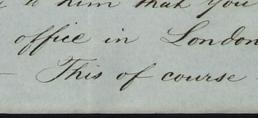 to him that you
office in London
— This of course